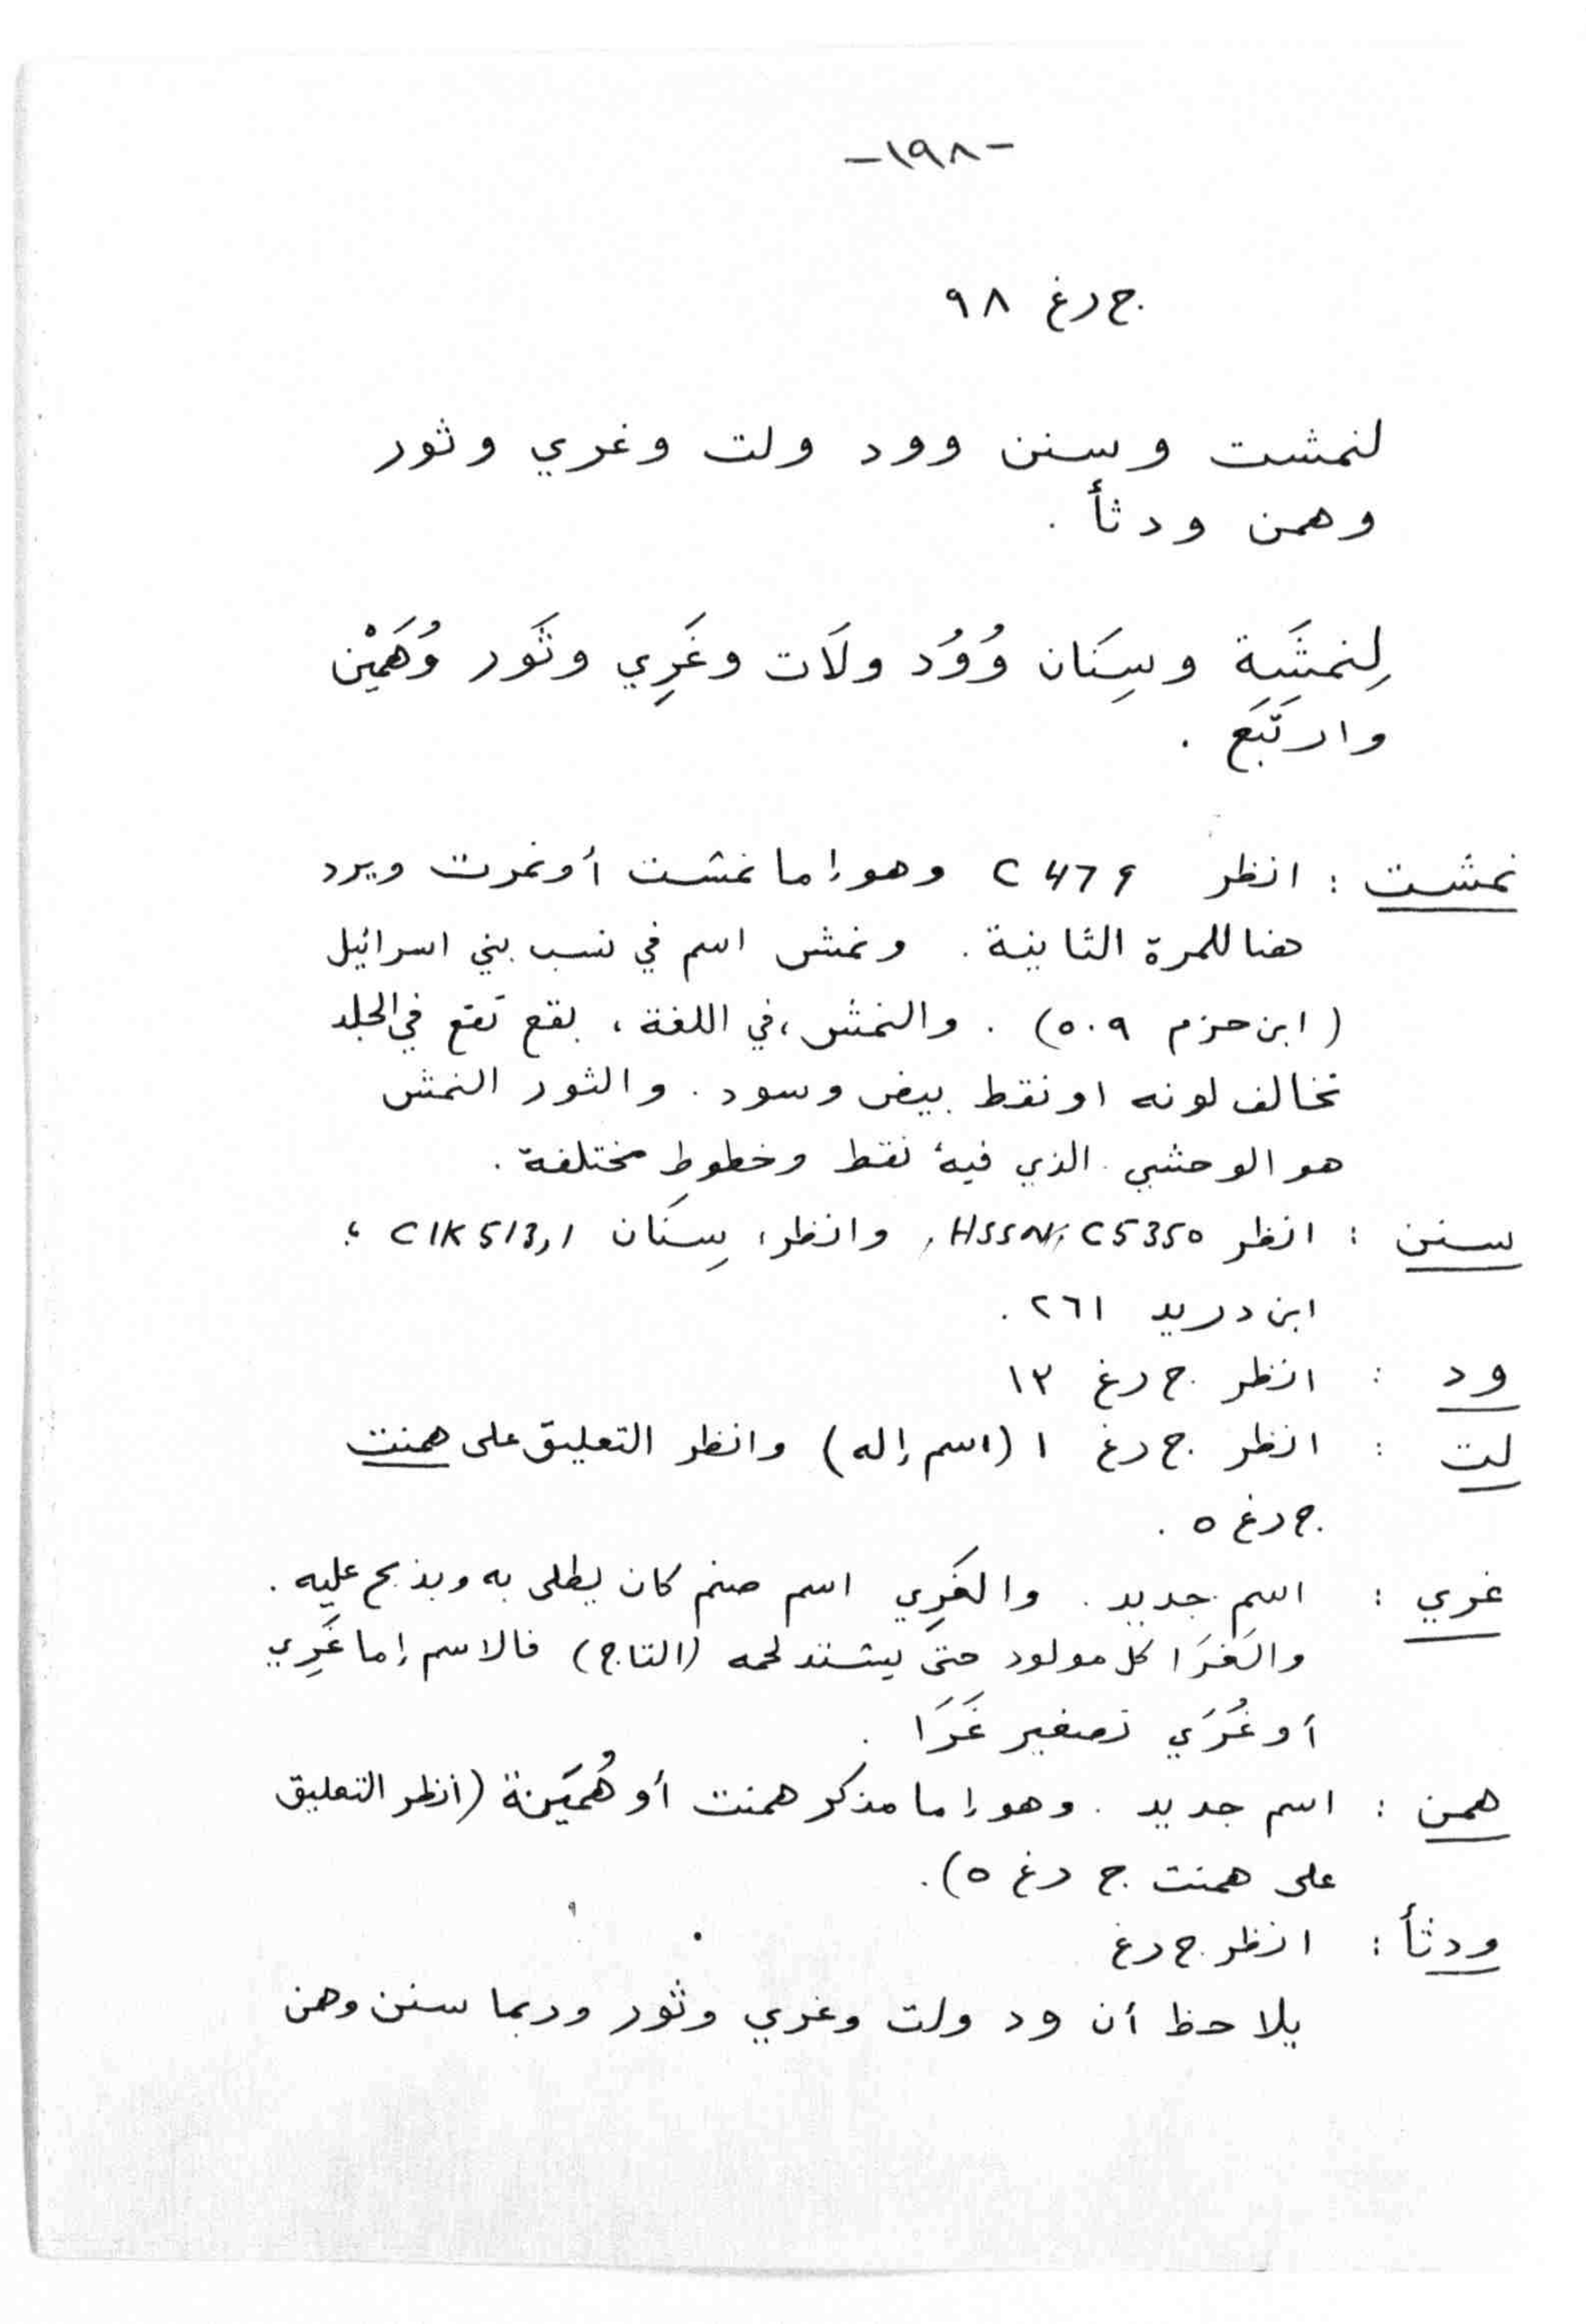 -١٩٨-
ج رغ ٩٨
لنمشت وسنن وود ولت وغري وثور
وهمن ودثأ .
لِنمشَة وسِنَان وُوُد ولَات وغَرِي وثَور وُهَمَيْن
وارتَبَع .
نمشت : انظر C 476 وهو إما نمشت أو نمرت ويرد
هنا للمرة الثانية . ونمش اسم في نسب بني اسرائيل
(ابن حزم ٥٠٩) . والنمش، في اللغة، بقع تقع في الجلد
تخالف لونه او نقط بيض وسود . والثور النمش
هو الوحشي الذي فيه نقط وخطوط مختلفة .
سنن : انظر HSSN, C5350, وانظر، سِنَان CIK 513,1 ؛
ابن دريد ٢٦١ .
ود : انظر ج رغ ١٣
لت : انظر ج رغ ١ (اسم إله) وانظر التعليق على همنت
ج رغ ٥ .
غري : اسم جديد . والغَرِي اسم صنم كان يطلى به ويذبح عليه .
والغَرَا كل مولود حتى يشتد لحمه (التاج) فالاسم إما غَرِي
أو غُرَي تصغير غَرَا .
همن : اسم جديد . وهو إما مذكر همنت أو هُمَيَنة (أنظر التعليق
على همنت ج رغ ٥) .
ودثأ : انظر ج رغ
يلاحظ أن ود ولت وغري وثور وربما سنن وهن